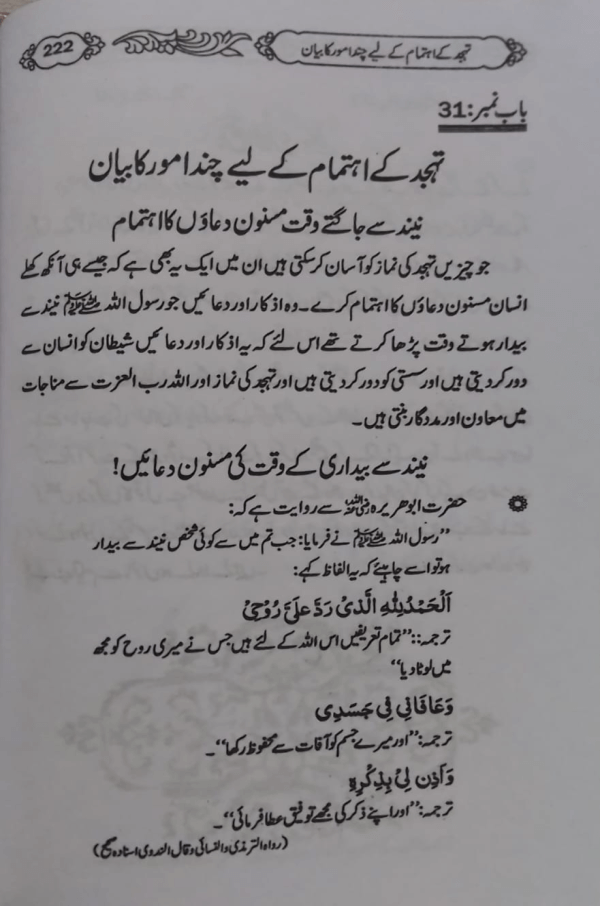 222
تہجد کے اہتمام کے لیے چند امور کا بیان
باب نمبر: 31
تہجد کے اہتمام کے لیے چند امور کا بیان
نیند سے جاگتے وقت مسنون دعاؤں کا اہتمام
جو چیزیں تہجد کی نماز کو آسان کر سکتی ہیں ان میں ایک یہ بھی ہے کہ جیسے ہی آنکھ کھلے
انسان مسنون دعاؤں کا اہتمام کرے۔ وہ اذکار اور دعائیں جو رسول اللہ ﷺ نیند سے
بیدار ہوتے وقت پڑھا کرتے تھے اس لئے کہ یہ اذکار اور دعائیں شیطان کو انسان سے
دور کر دیتی ہیں اور سستی کو دور کر دیتی ہیں اور تہجد کی نماز اور اللہ رب العزت سے مناجات
میں معاون اور مددگار بنتی ہیں۔
نیند سے بیداری کے وقت کی مسنون دعائیں!
حضرت ابوھریرہ رضی اللہ عنہ سے روایت ہے کہ:
”رسول اللہ ﷺ نے فرمایا: جب تم میں سے کوئی شخص نیند سے بیدار
ہو تو اسے چاہیئے کہ یہ الفاظ کہے:
اَلْحَمْدُ لِلّٰہِ الَّذِیْ رَدَّ عَلَیَّ رُوْحِیْ
ترجمہ:: ”تمام تعریفیں اس اللہ کے لئے ہیں جس نے میری روح کو مجھ
میں لوٹا دیا“
وَعَافَانِیْ فِیْ جَسَدِیْ
ترجمہ: ”اور میرے جسم کو آفات سے محفوظ رکھا“۔
وَاَذِنَ لِیْ بِذِکْرِہٖ
ترجمہ: ”اور اپنے ذکر کی مجھے توفیق عطا فرمائی“۔
(رواہ الترمذی والنسائی وقال الندوی اسنادہ صحیح)